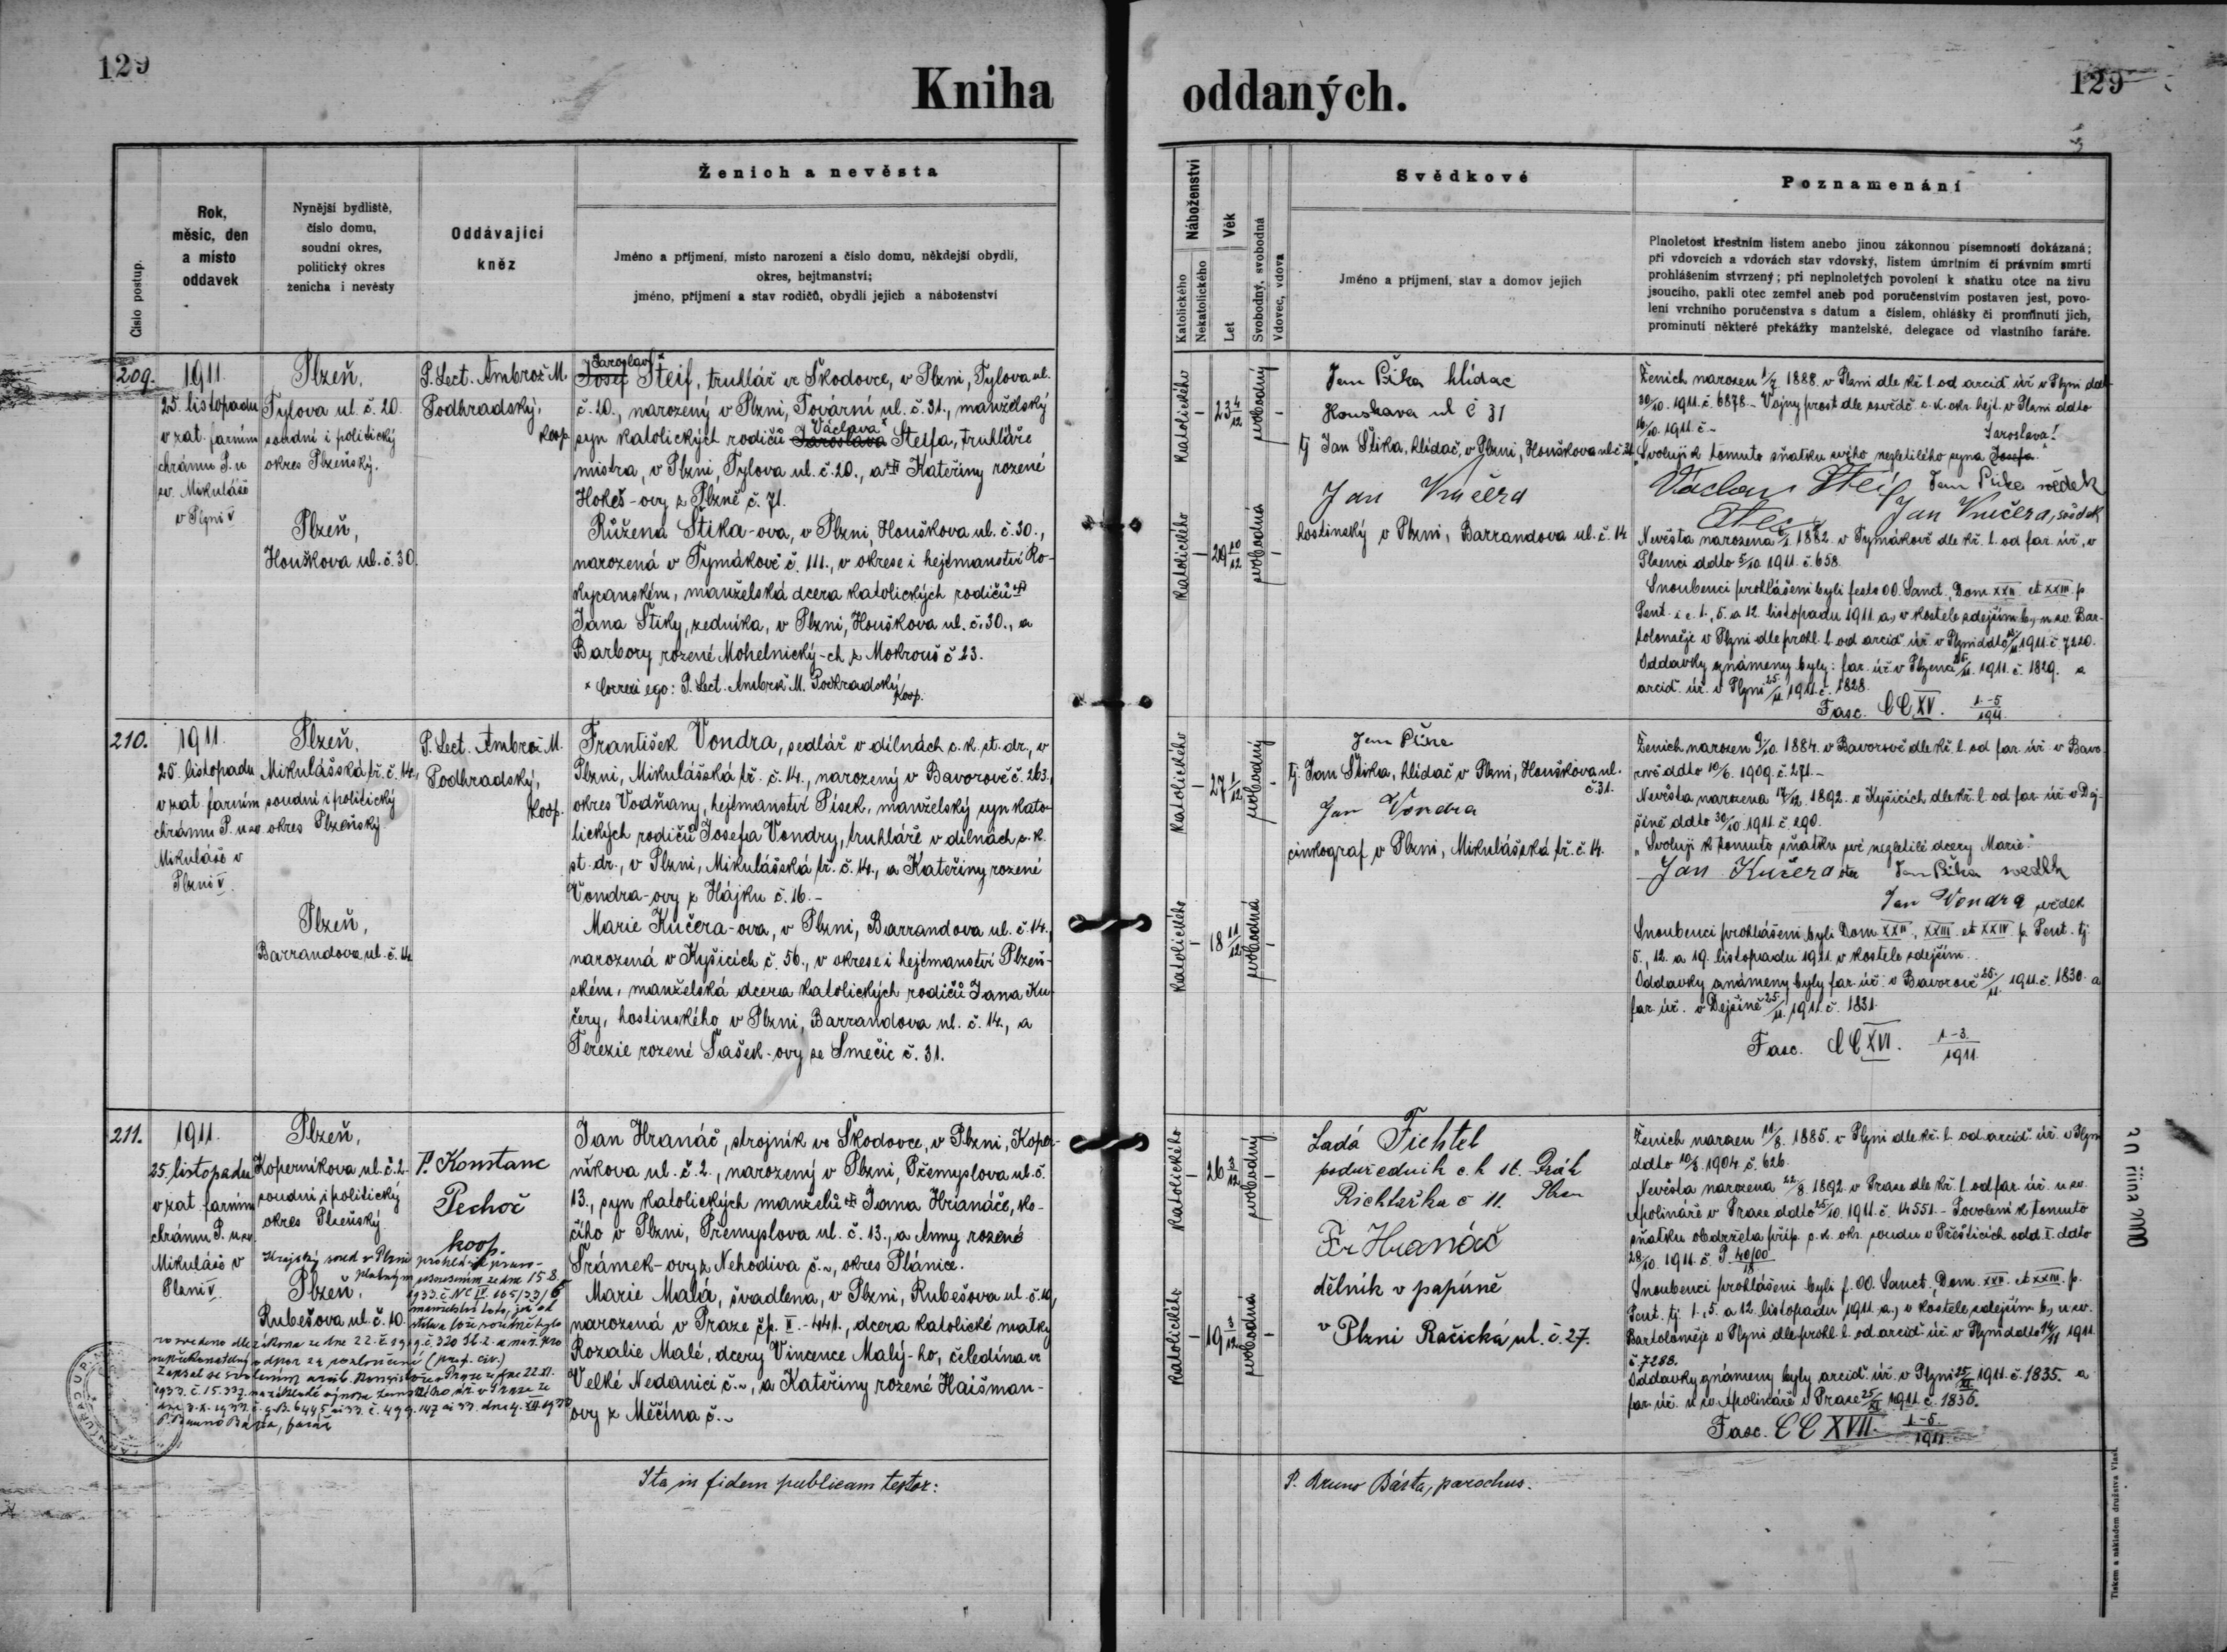 129
Kniha
oddaných.
129
Číslo postup.
Rok,
měsíc, den
a místo
oddavek
Nynější bydliště,
číslo domu,
soudní okres,
politický okres
ženicha i nevěsty
Oddávající
kněz
Ženich a nevěsta
Jméno a příjmení, místo narození a číslo domu, někdejší obydlí,
okres, hejtmanství;
jméno, příjmení a stav rodičů, obydlí jejich a náboženství
209.
1911.
25. listopadu
v zat. farním
chrámu P. u
sv. Mikuláše
v Plzni V
Plzeň,
Tylova ul. č. 20.
soudní i politický
okres Plzeňský.
Plzeň,
Houškova ul. č. 30.
P. Lect. Ambrož M.
Podhradský,
koop.
Jaroslav ×
Josef Steif, truhlář ve Škodovce, v Plzni, Tylova ul.
č. 20., narozený v Plzni, Tovární ul. č. 31., manželský
Václava ×
syn katolických rodičů Jaroslava Steifa, truhláře
mistra, v Plzni, Tylova ul. č. 20., a Kateřiny rozené
Hokeš-ovy z Plzně č. 71.
Růžena Štika-ova, v Plzni, Houškova ul. č. 30.,
narozená v Tymákově č. 111., v okrese i hejtmanství Ro-
kycanském, manželská dcera katolických rodičů
Jana Štiky, zedníka, v Plzni, Houškova ul. č. 30., a
Barbory rozené Mohelnický-ch z Mokrouš č. 23.
× Correxi ego: P. Lect. Ambrož M. Podhradský
koop.
210.
1911.
25. listopadu
v zat. farním
chrámu P. u sv.
Mikuláše v
Plzni V.
Plzeň,
Mikulášská tř. č. 14.,
soudní i politický
okres Plzeňský
Plzeň,
Barrandova ul. č. 14
P. Lect. Ambrož M.
Podhradský,
koop.
František Vondra, sedlář v dílnách c. k. st. dr., v
Plzni, Mikulášská tř. č. 14., narozený v Bavorově č. 263.,
okres Vodňany, hejtmanství Písek, manželský syn kato-
lických rodičů Josefa Vondry, truhláře v dílnách c. k.
st. dr., v Plzni, Mikulášská tř. č. 14., a Kateřiny rozené
Vondra-ovy z Hájku č. 16.-
Marie Kučera-ova, v Plzni, Barrandova ul. č. 14.,
narozená v Kyšicích č. 56., v okrese i hejtmanství Plzeň-
ském, manželská dcera katolických rodičů Jana Ku-
čery, hostinského v Plzni, Barrandova ul. č. 14., a
Terezie rozené Šašek-ovy ze Smečic č. 31.
211.
1911.
25. listopadu
v zat. farním
chrámu P. u sv.
Mikuláše v
Plzni V.
Plzeň,
Koperníkova ul. č. 2.
soudní i politický
okres Plzeňský
Plzeň,
Rubešova ul. č. 10.
P. Konstanc
Pechoč
koop.
Krajský soud v Plzni prohlásil pravo-
platným usnesením ze dne 15.8.
1933. č. Nc IV 165/33/6
manželství toto, jež od
stolu a lože soudně bylo
rozvedeno dle zákona ze dne 22. č. 1919. č. 320 Sb. z. a nař. pro
nepřekonatelný odpor za rozloučené (priv. civ.)
P. Bruno Bárta, farář
Jan Hranáč, strojník ve Škodovce, v Plzni, Koper-
níkova ul. č. 2., narozený v Plzni, Přemyslova ul. č.
13., syn katolických manželů Jana Hranáče, ko-
čího v Plzni, Přemyslova ul. č. 13., a Anny rozené
Šrámek-ovy z Nehodiva č.~, okres Plánice.
Marie Malá, švadlena, v Plzni, Rubešova ul. č. 10,
narozená v Praze čp. II.-441., dcera katolické matky
Rozalie Malé, dcery Vincence Malý-ho, čeledína ve
Velké Nedanici č.~, a Kateřiny rozené Haišman-
ovy z Měčína č.~
Ita in fidem publicam testor:
Náboženství
Katolického
Nekatolického
Věk
Let
Svobodný, svobodná
Vdovec, vdova
Svědkové
Jméno a příjmení, stav a domov jejich
Poznamenání
Plnoletost křestním listem anebo jinou zákonnou písemností dokázaná;
při vdovcích a vdovách stav vdovský, listem úmrtním či právním smrti
prohlášením stvrzený; při neplnoletých povolení k sňatku otce na živu
jsoucího, pakli otec zemřel aneb pod poručenstvím postaven jest, povo-
lení vrchního poručenstva s datum a číslem, ohlášky či prominutí jich,
prominutí některé překážky manželské, delegace od vlastního faráře.
Katolického
-
23 4/12
svobodný
-
Katolického
-
29 10/12
svobodná
-
Jan Šika hlídac
Houskava ul č 31
tj Jan Štika, hlídač, v Plzni, Houškova ul č. 31
Jan Kučera
hostinský v Plzni, Barrandova ul. č. 14
Ženich narozen 1/7 1888. v Plzni dle kř. l. od arciď. úř. v Plzni ddto
30/10. 1911. č. 6878.- Vojny prost dle osvědč. c. k. okr. hejt. v Plzni ddto
16/10. 1911 č.-
Jaroslava!
„Svoluji k tomuto sňatku svého nezletilého syna Josefa."
Václav Steif Jan Šika svědek
otec Jan Kučera, svědek
Nevěsta narozena 1882. v Tymákově dle kř. l. od far. úř. v
Plzenci ddto 5/10. 1911. č. 658.
Snoubenci prohlášeni byli festo OO. Sanct., Dom XXII. et XXIII. p.
Pent. i. e. 1., 5. a 12. listopadu 1911 a, v kostele zdejším b, u sv. Bar-
toloměje v Plzni dle prohl. l. od arciď. úř. v Plzni ddto 1911. č. 7220.
Oddavky známeny byly: far. úř. v Plzenci 25/11. 1911. č. 1829. a
arciď. úř. v Plzni 25/11 1911. č. 1828.
Fasc. CCXV. 1.-5/1911.
Katolického
-
27 1/12
svobodný
-
Katolického
-
18 11/12
svobodná
-
Jan Šika
tj. Jan Štika, hlídač v Plzni, Houškova ul.
č. 31.
Jan Vondra
cinkograf v Plzni, Mikulášská tř. č. 14.
Ženich narozen 9/10. 1884. v Bavorově dle kř. l. od far. úř. v Bavo-
rově ddto 10/6. 1909. č. 271.-
Nevěsta narozena 17/12. 1892. v Kyšicích dle kř. l. od far. úř. v Dej-
šině ddto 30/10. 1911. č. 290.
„Svoluji k tomuto sňatku své nezletilé dcery Marie."
Jan Kučera otec Jan Šika svedek
Jan Vondra svědek
Snoubenci prohlášeni byli Dom XXII., XXIII. et XXIV. p. Pent. tj.
5., 12. a 19. listopadu 1911. v kostele zdejším.
Oddavky známeny byly far. úř. v Bavorově 25./11. 1911. č. 1830. a
far. úř. v Dejšině 25./11. 1911. č. 1831.
Fasc. CCXVI. 1-3./1911.
Katolického
-
26 3/12
svobodný
-
Katolického
-
19 3/12
svobodná
-
Ladá Fichtel
podúředník c. k st. Dráh
Richtářka č 11. Plzen
Fr Hranáč
dělník v papírně
v Plzni Račická ul. č. 27.
Ženich narozen 11/8. 1885. v Plzni dle kř. l. od arciď. úř. v Plzni
ddto 10/8. 1904. č. 626.
Nevěsta narozena 22/8. 1892. v Praze dle kř. l. od far. úř. u sv.
Apolináře v Praze ddto 25/10. 1911. č. 14551.- Povolení k tomuto
sňatku obdržela příp. c. k. okr. soudu v Přešticích odd. I. ddto
28/10. 1911. č. P 40/00/18
Snoubenci prohlášeni byli f. OO. Sanct., Dom. XXII. et XXIII. p.
Pent. tj. 1., 5. a 12. listopadu 1911. a, v kostele zdejším b, u sv.
Bartoloměje v Plzni dle prohl. l. od arciď. úř. v Plzni ddto 14/11 1911.
č. 7288.
Oddavky známeny byly arciď. úř. v Plzni 25/XI. 1911. č. 1835. a
far. úř. u sv. Apolináře v Praze 25/XI. 1911. č. 1836.
Fasc. CCXVII. 1-5./1911.
P. Bruno Bárta, parochus.
20 října 2000
Tiskem a nákladem družstva Vlast.